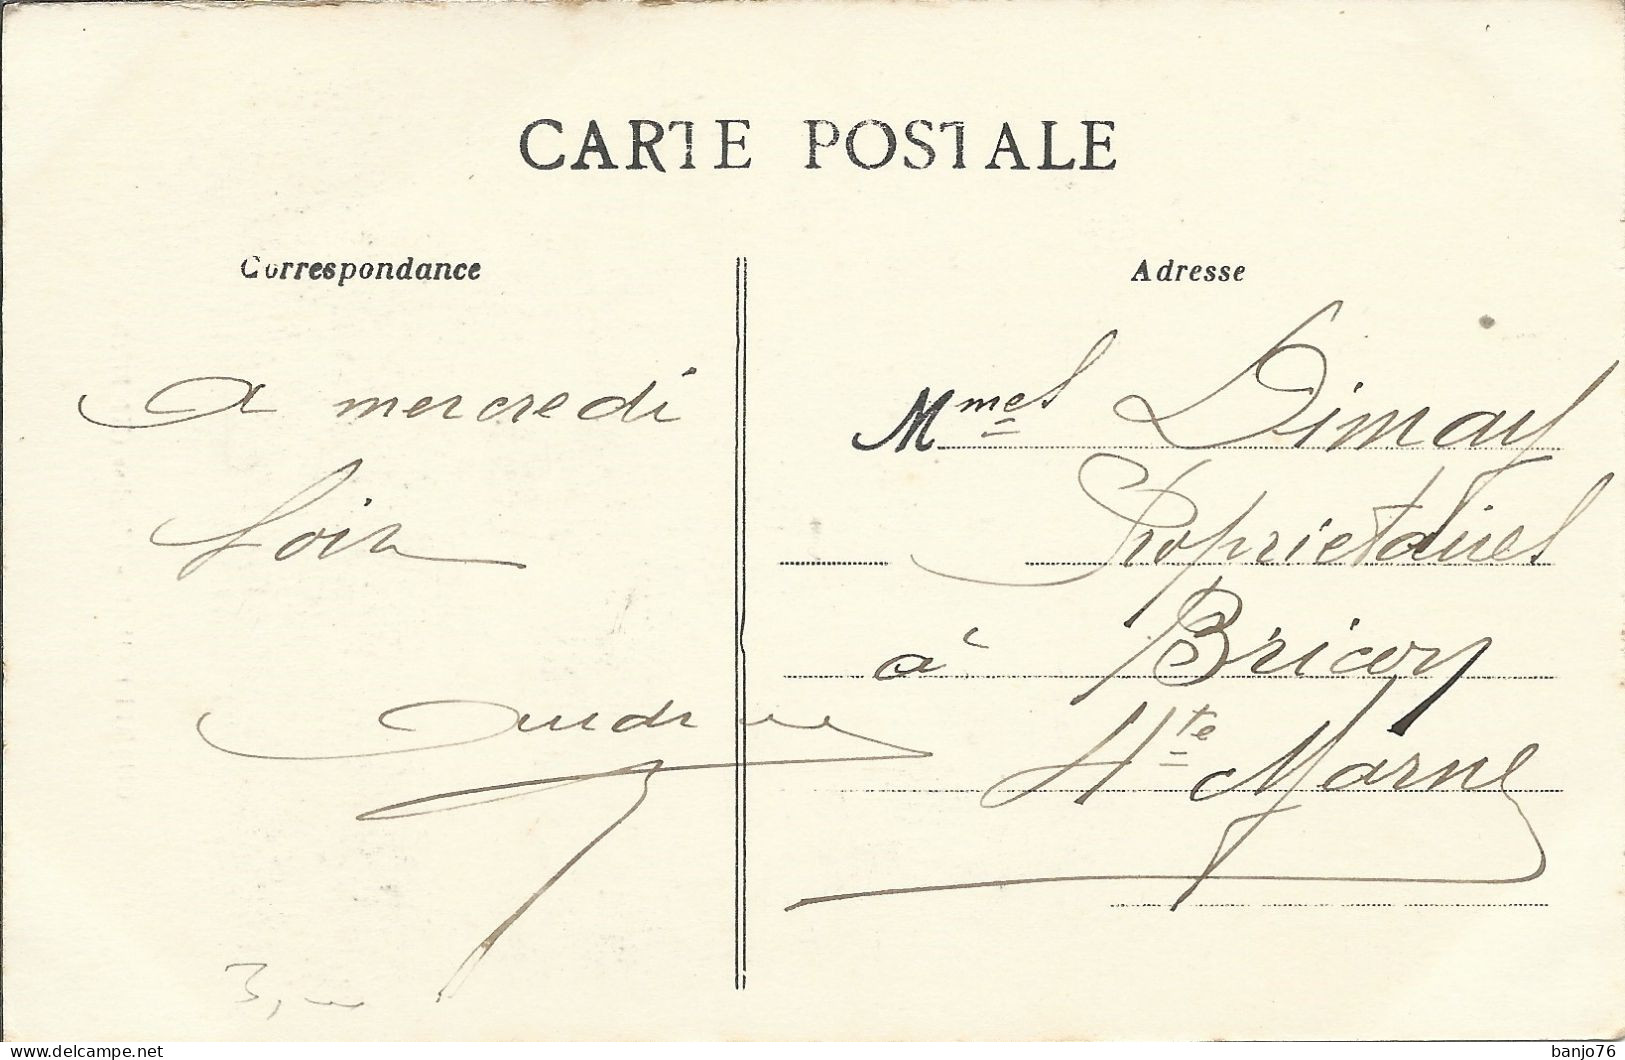 CARTE POSTALE
Correspondance
A mercredi
soir
Adresse
Mmes Dimay
Proprietaires
à Bricon
Hte Marne
3,
delcampe.net
banjo76